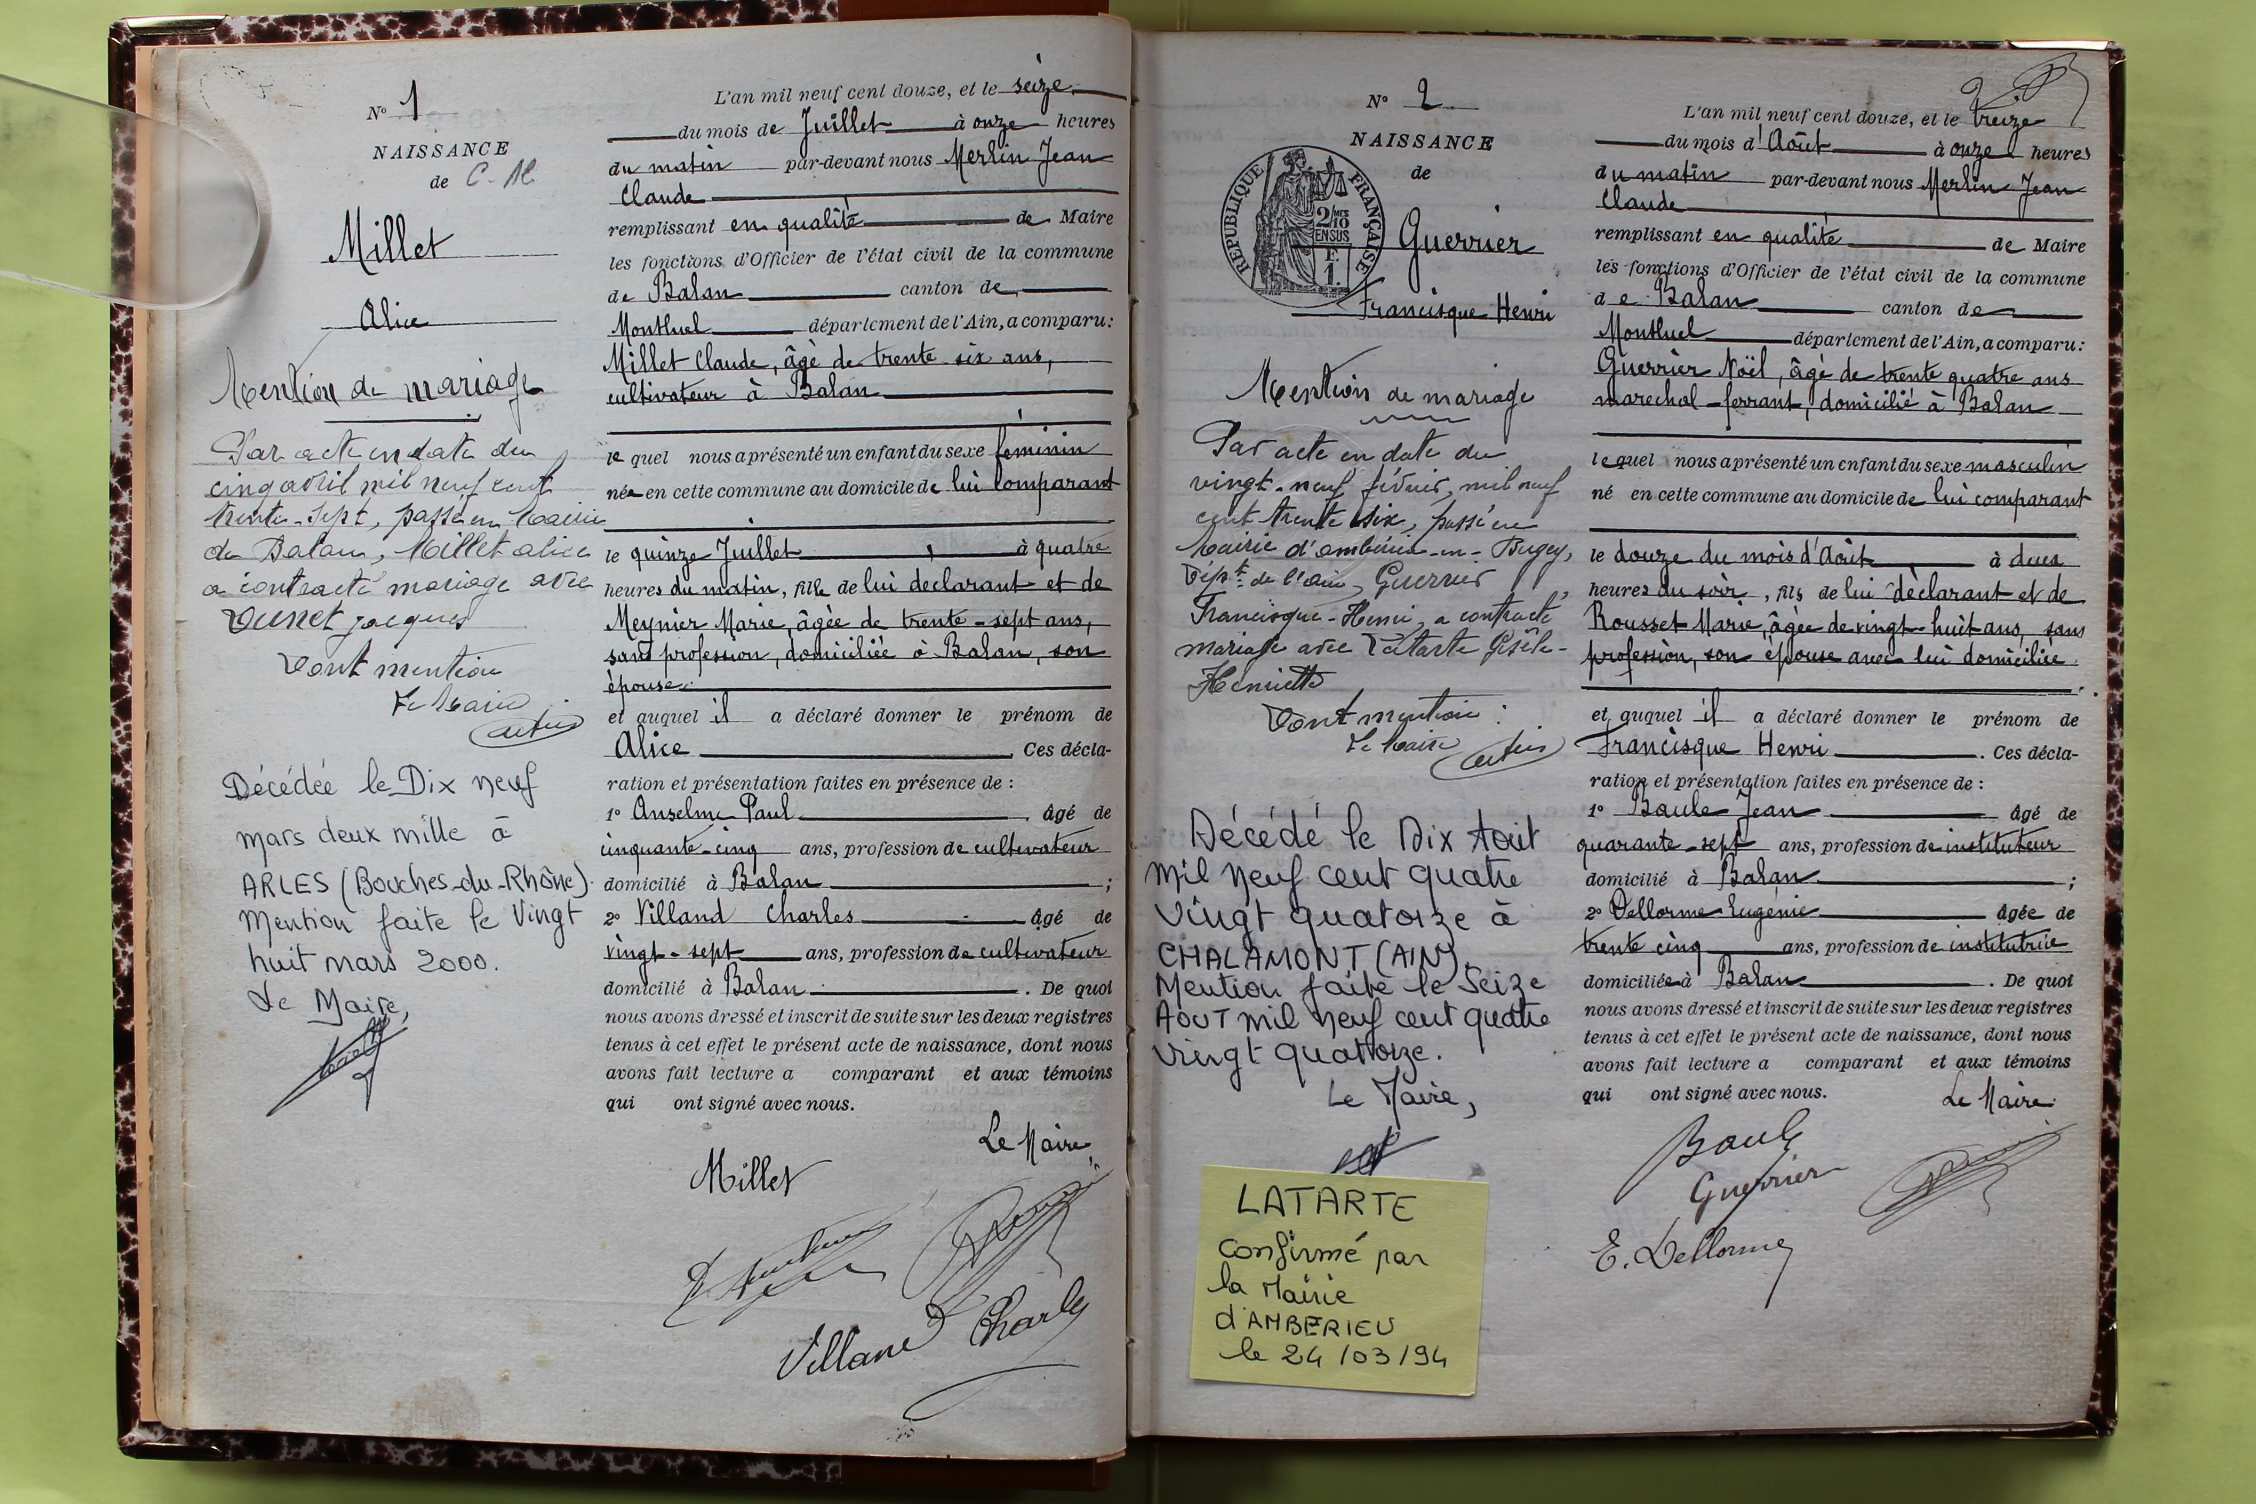 N° 1
NAISSANCE
de C. M.
Millet
Alice
Mention de mariage
Par acte en date du
cinq avril mil neuf cent
trente-sept, passé en Mairie
de Balan, Millet Alice
a contracté mariage avec
Jacques
Dont mention
Le Maire
Décédée le Dix neuf
mars deux mille à
ARLES (Bouches-du-Rhône).
Mention faite le Vingt
huit mars 2000.
Le Maire,
L'an mil neuf cent douze, et le seize
du mois de Juillet à onze heures
du matin par-devant nous Merlin Jean
Claude
remplissant en qualité de Maire
les fonctions d'Officier de l'état civil de la commune
de Balan canton de
Montluel département de l'Ain, a comparu:
Millet Claude, âgé de trente six ans,
cultivateur à Balan
le quel nous a présenté un enfant du sexe féminin
née en cette commune au domicile de lui comparant
le quinze Juillet, à quatre
heures du matin, fille de lui déclarant et de
Meynier Marie, âgée de trente-sept ans,
sans profession, domiciliée à Balan, son
épouse.
et auquel il a déclaré donner le prénom de
Alice. Ces décla-
ration et présentation faites en présence de :
1° Anselme Paul, âgé de
cinquante-cinq ans, profession de cultivateur
domicilié à Balan ;
2° Villand Charles âgé de
vingt-sept ans, profession de cultivateur
domicilié à Balan. De quoi
nous avons dressé et inscrit de suite sur les deux registres
tenus à cet effet le présent acte de naissance, dont nous
avons fait lecture a comparant et aux témoins
qui ont signé avec nous.
Le Maire,
Millet
Villand Charles
2
N° 2
NAISSANCE
de
RÉPUBLIQUE FRANÇAISE
2/10 MES
EN SUS
F.
1.
Guerrier
Francisque Henri
Mention de mariage
Par acte en date du
vingt-neuf février, mil neuf
cent trente six, passé en
Mairie d'Ambérieu-en-Bugey,
Dépt de l'Ain, Guerrier
Francisque-Henri, a contracté
mariage avec Latarte Gisèle-
Henriette
Dont mention :
Le Maire
Décédé le Dix Août
mil neuf cent quatre
vingt quatorze à
CHALAMONT (AIN).
Mention faite le Seize
AOUT mil neuf cent quatre
vingt quatorze.
Le Maire,
LATARTE
confirmé par
la Mairie
d'AMBERIEU
le 24/03/94
L'an mil neuf cent douze, et le treize
du mois d'Août à onze heures
du matin par-devant nous Merlin Jean
Claude
remplissant en qualité de Maire
les fonctions d'Officier de l'état civil de la commune
de Balan canton de
Montluel département de l'Ain, a comparu:
Guerrier Noël, âgé de trente quatre ans
marechal-ferrant, domicilié à Balan
lequel nous a présenté un enfant du sexe masculin
né en cette commune au domicile de lui comparant
le douze du mois d'Août, à deux
heures du soir, fils de lui déclarant et de
Rousset Marie, âgée de vingt-huit ans, sans
profession, son épouse avec lui domiciliée.
et auquel il a déclaré donner le prénom de
Francisque Henri. Ces décla-
ration et présentation faites en présence de :
1° Baule Jean âgé de
quarante-sept ans, profession de instituteur
domicilié à Balan ;
2° Dellorme Eugénie âgée de
trente cinq ans, profession de institutrice
domiciliée à Balan. De quoi
nous avons dressé et inscrit de suite sur les deux registres
tenus à cet effet le présent acte de naissance, dont nous
avons fait lecture a comparant et aux témoins
qui ont signé avec nous.
Le Maire
Baule
Guerrier
E. Dellorme